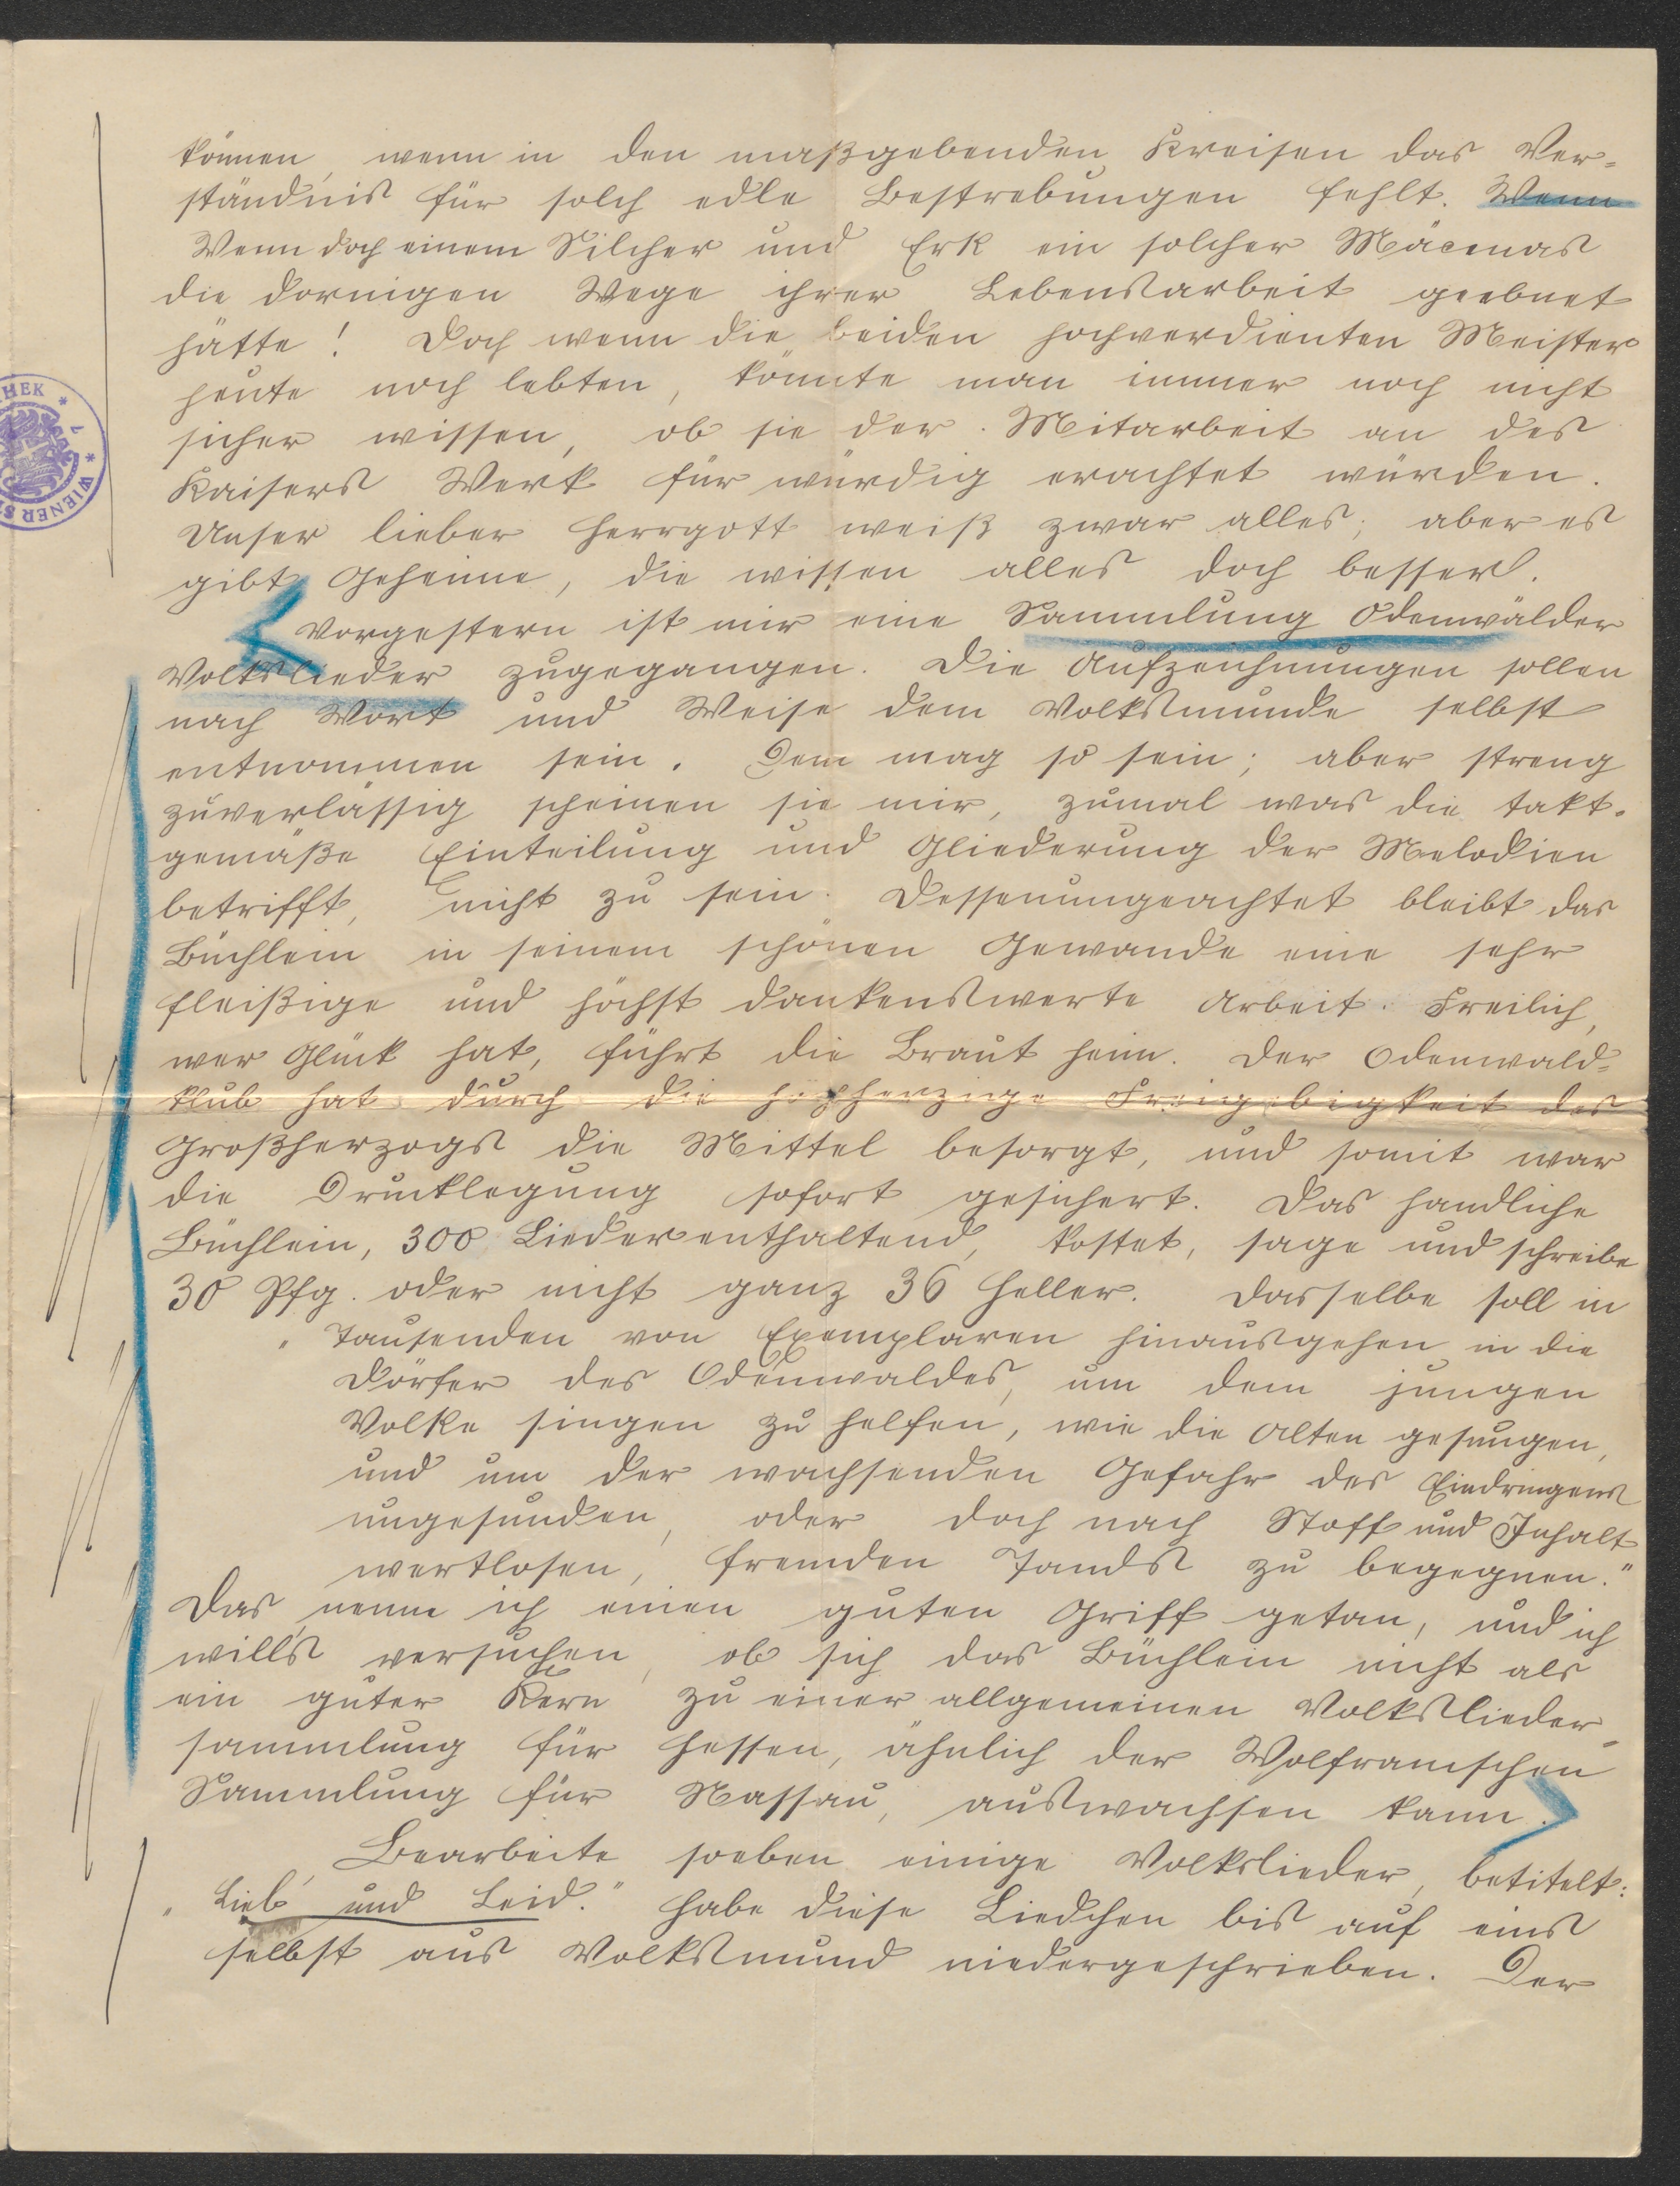 können, wenn in den maßgebenden Kreisen das Ver-
ständnis für solch edle Bestrebungen fehlt. Wenn
Wenn doch einem Silcher und Erk ein solcher Mäcenas
die dornigen Wege ihrer Lebensarbeit geebnet
hätte! Doch wenn die beiden hochverdienten Meister
heute noch lebten, könnte man immer noch nicht
sicher wissen, ob sie der Mitarbeit an des
Kaisers Werk für würdig erachtet würden.
Unser lieber Herrgott weiß zwar alles; aber es
gibt Geheime, die wissen alles doch besser.
Vorgestern ist mir eine Sammlung Odenwälder
Volkslieder zugegangen. Die Aufzeichnungen sollen
nach Wort und Weise dem Volksmunde selbst
entnommen sein. Dem mag so sein; aber streng
zuverlässig scheinen sie mir, zumal was die takt-
gemäße Einteilung und Gliederung der Melodien
betrifft, nicht zu sein. Dessenungeachtet bleibt das
Büchlein in seinem schönen Gewande eine sehr
fleißige und höchst dankenswerte Arbeit. Freilich,
wer Glück hat, führt die Braut heim. Der Odenwald-
klub hat durch die hochherzige Freigebigkeit des
Großherzogs die Mittel besorgt, und somit war
die Drucklegung sofort gesichert. Das handliche
Büchlein, 300 Lieder enthaltend, kostet, sage und schreibe
30 Pfg. oder nicht ganz 36 Heller. Dasselbe soll in
"Tausenden von Exemplaren hinausgehen in die
Dörfer des Odenwaldes, um dem jungen
Volke singen zu helfen, wie die Alten gesungen,
und um der wachsenden Gefahr des Eindringens
ungesunden, oder doch nach Stoff und Inhalt
wertlosen, fremden Tands zu begegnen."
Das nenne ich einen guten Griff getan, und ich
will's versuchen, ob sich das Büchlein nicht als
ein guter Kern zu einer allgemeinen Volkslieder-
sammlung für Hessen, ähnlich der Wolframschen
Sammlung für Nassau, auswachsen kann.
Bearbeite soeben einige Volkslieder, betitelt:
"Lieb' und Leid." Habe diese Liedchen bis auf eins
selbst aus Volksmund niedergeschrieben. Der
HEK * 7 * WIENER S